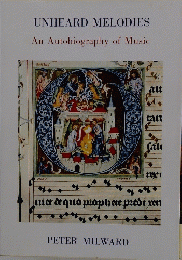 UNHEARD MELODIES
An Autobiography of Music
PETER MILWARD